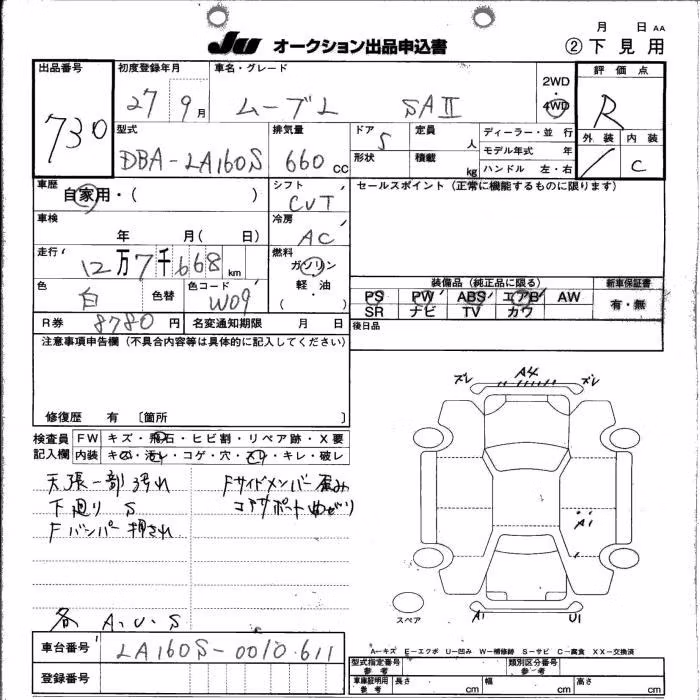 月 日 AA
JU オークション出品申込書 ②下見用
出品番号 初度登録年月 車名・グレード 評価点
730 27 9月 ムーブL SAⅢ 2WD 4WD R
型式 排気量 ドア 定員 ディーラー・並 行 外装 内装
DBA-LA160S 660cc 5 人 モデル年式 年 C
形状 積載 kg ハンドル 左・右
車歴 シフト セールスポイント(正常に機能するものに限ります)
自家用・( ) CVT
車検 冷房
年 月( 日) AC
走行 燃料
12万7千668km ガソリン
色 色替 色コード 軽・油 装備品(純正品に限る) 新車保証書
白 W09 ( ) PS PW ABS エアB AW 有・無
SR ナビ TV カワ
R券 8780円 名変通知期限 月 日 後日品
注意事項申告欄(不具合内容等は具体的に記入してください)
修復歴 有 [箇所 ]
検査員 FW キズ・飛石・ヒビ割・リペア跡・X要
記入欄 内装 キズ・汚レ・コゲ・穴・スレ・キレ・破レ
ズレ A4 ズレ
天張一部汚れ Fサイドメンバー歪み
下廻り S コアサポートゆがみ
Fバンパー押され
A1
各 A.U.S
スペア A1 U1
A-キズ E-エクボ U-凹み W-補修跡 S-サビ C-腐食 XX-交換済
車台番号 LA160S-0010611
登録番号
型式指定番号 参考 類別区分番号 参考
車庫証明用 参考 長さ cm 幅 cm 高さ cm